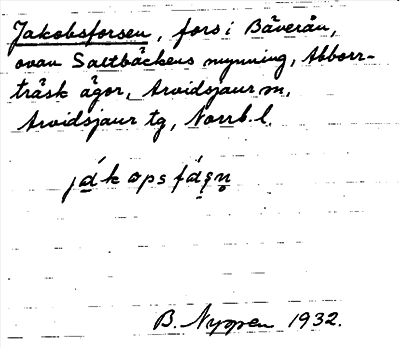 Jakobsforsen, fors i Bäverån,
ovan Saltbäckens mynning, Abborr-
träsk ägor, Arvidsjaur m,
Arvidsjaur tg, Norrb. l.
jákops fáṣṇ
B. Nyppen 1932.